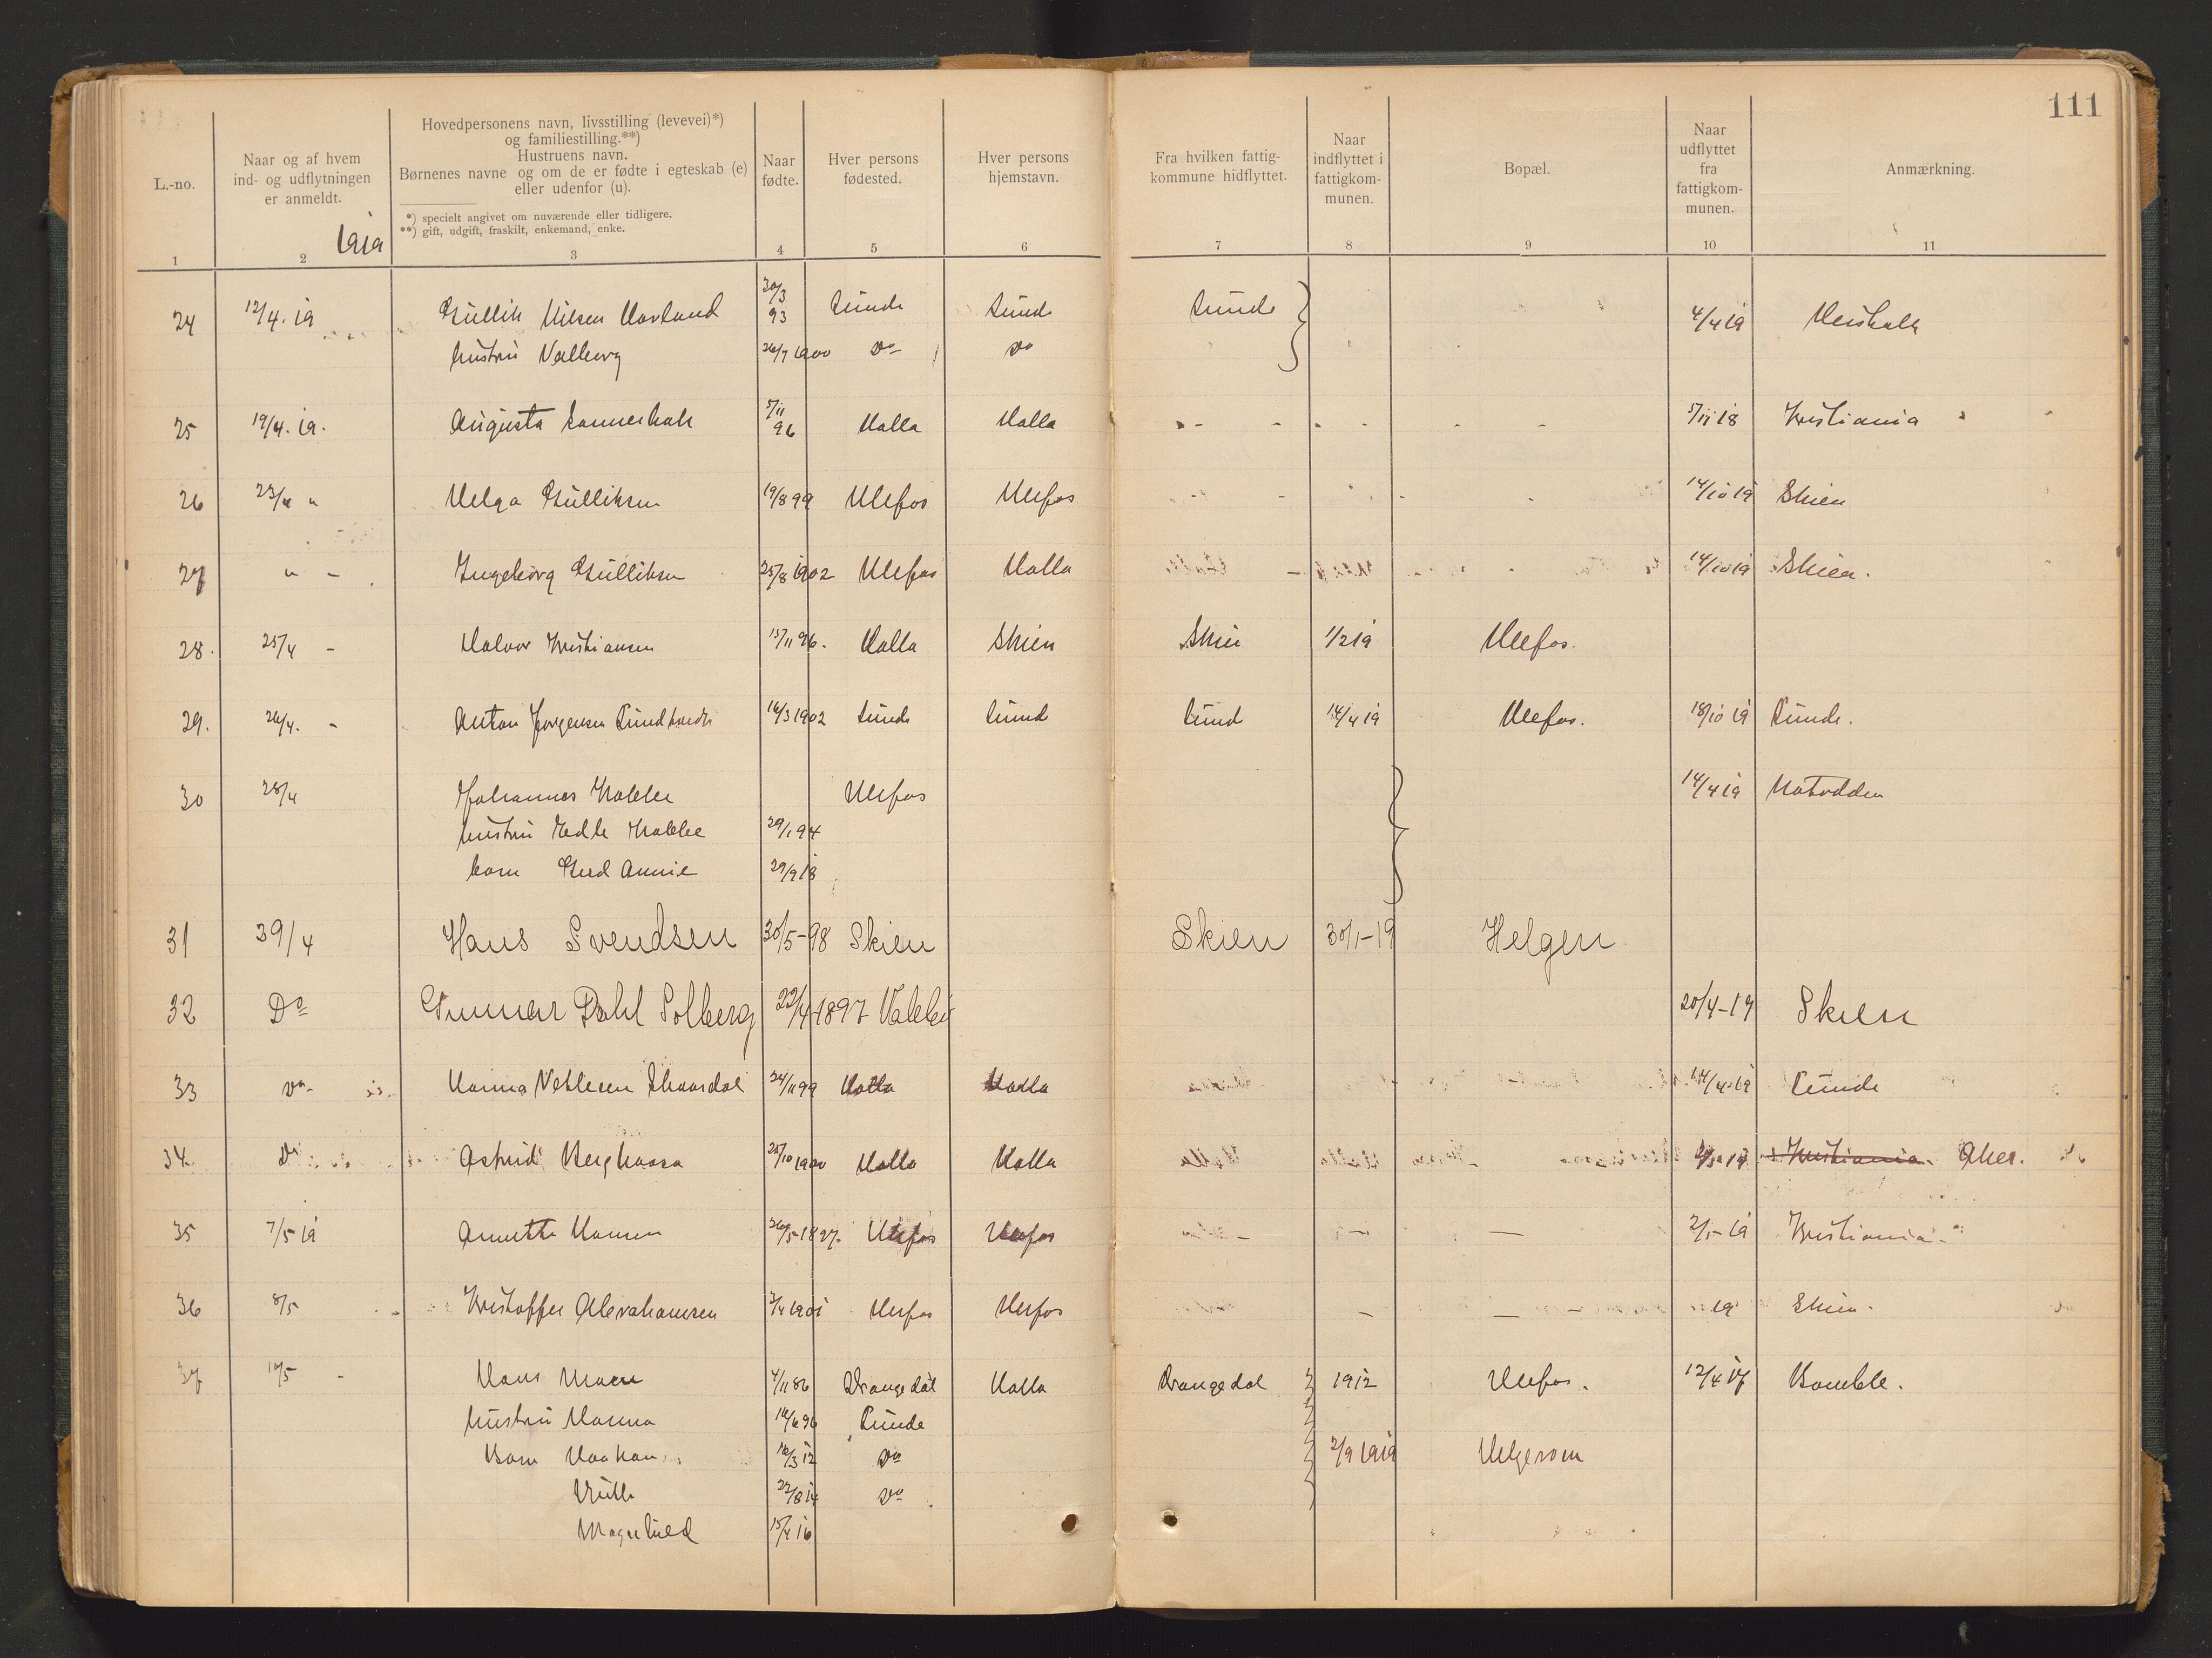 111
L.-no.
Naar og af hvem
ind- og udflytningen
er anmeldt.
Hovedpersonens navn, livsstilling (levevei)*)
og familiestilling.**)
Hustruens navn.
Børnenes navne og om de er fødte i egteskab (e)
eller udenfor (u).
*) specielt angivet om nuværende eller tidligere.
**) gift, udgift, fraskilt, enkemand, enke.
Naar
fødte.
Hver persons
fødested.
Hver persons
hjemstavn.
Fra hvilken fattig-
kommune hidflyttet.
Naar
indflyttet i
fattigkom-
munen.
Bopæl.
Naar
udflyttet
fra
fattigkom-
munen.
Anmærkning.
1919
1 2 3 4 5 6 7 8 9 10 11
24 12/4. 19 Gullik Nilsen 30/3 93 Lunde Lunde Lunde 4/4 19
hustru Valborg 26/7 1900 Do Do
25 19/4. 19. Augusta 5/11 96 Holla Holla - - - - - - 5/11 18 Kristiania
26 23/4 " Helga Gulliksen 19/8 99 Ulefos Ulefos - - - - 14/10 19 Skien
27 " - Ingeborg Gulliksen 25/8 1902 Ulefos Holla - 14/10 19 Skien.
28. 25/4 - Halvor Kristiansen 15/11 96. Holla Skien Skien 1/2 19 Ulefos.
29. 26/4. - Anton Jørgensen 16/3 1902 Lunde Lunde Lunde 14/4 19 Ulefos. 18/10 19 Lunde.
30 28/4 Johannes Kabbe Ulefos 14/4 19 Notodden
hustru Edle Kabbe 29/1 94
barn Gerd Annie 29/9 18
31 39/4 Hans Svendsen 30/5-98 Skien Skien 30/1-19 Helgen
32 Do Gunnar Dahl Solberg 22/4-1897 20/4-19 Skien
33 Do- Hanna 24/11 99 Holla Holla 14/4. 19 Lunde
34. Do Astrid Berghaara 25/10 1900 Holla Holla Kristiania. Aker.
35 7/5 19 Annette Hansen 26/5-1827. Ulefos Ulefos - - — 2/5-19 Kristiania.
36 8/5 - Kristoffer Abrahamsen 3/4 1901 Ulefos Ulefos - — - 19 Skien.
37 10/5 - Hans Moen 4/11 86 Drangedal Holla Drangedal 1912 Ulefos. 12/4 17 Bamble.
hustru Hanna 16/6 96 Lunde
Barn Haakon 16/3 12 Do 2/9 1919 Helgeroen
22/8 14 Do
Magnhild 15/4 16